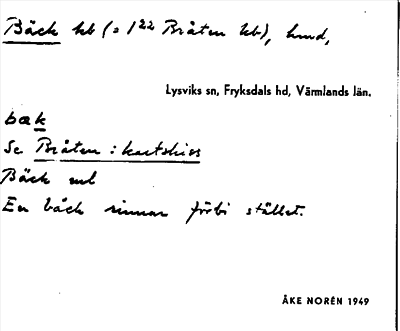 Bäck hb (= 1²² Bråten lb), hmd,
Lysviks sn, Fryksdals hd, Värmlands län.
bæk
Se Bråten : kartskiss
Bäck ml
En bäck rinner förbi stället.
ÅKE NORÉN 1949